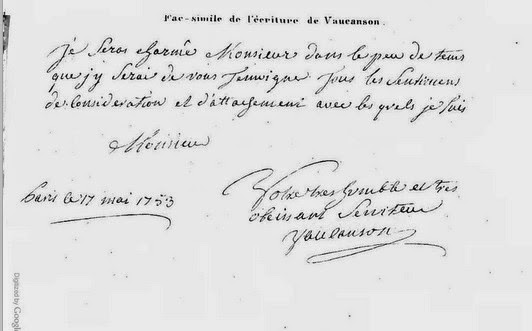 Fac-simile de l'écriture de Vaucanson.
je Serai charmé Monsieur dans le peu de tems
que j'y Serai de vous temoigner tous les Sentimens
de Consideration et d'attachement avec les quels je suis
Monsieur
Votre tres humble et tres
paris le 17 mai 1753
obeissant Serviteur
Vaucanson
Digitized by Google